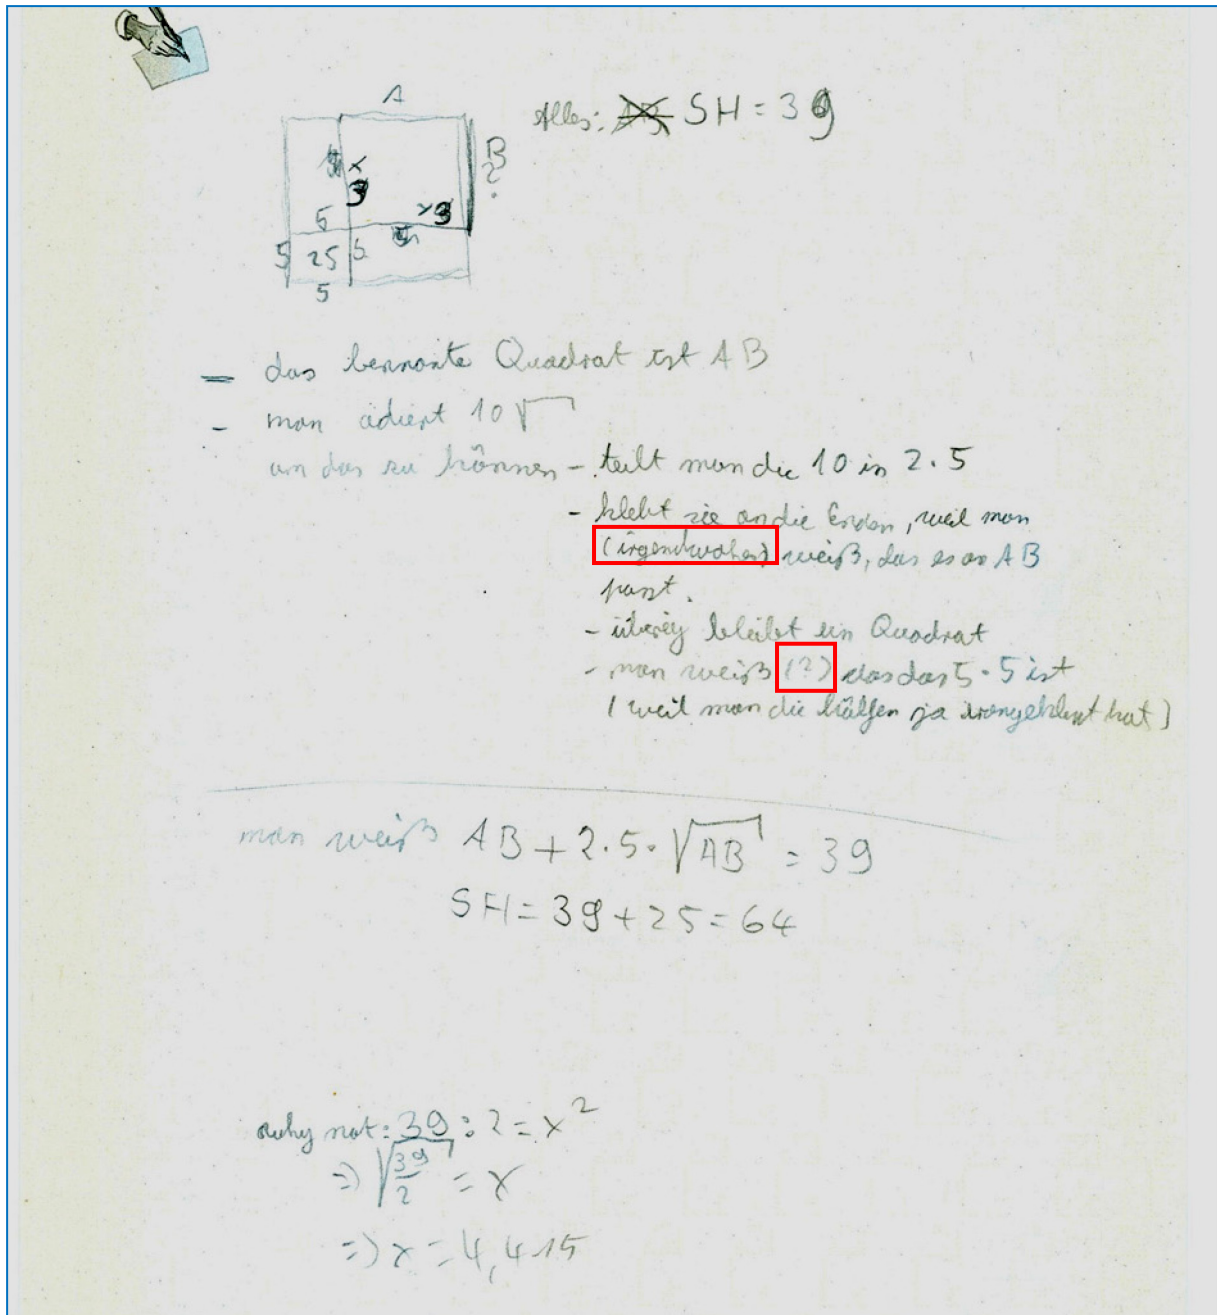 A
Alles: SH = 39
B
?
x
3
5
x3
5
25
5
5
das bennante Quadrat ist AB
- man adiert 10√
um das zu können - teilt man die 10 in 2·5
- klebt sie an die Enden, weil man
(irgendwoher) weiß, das es an AB
passt.
- überig bleibt ein Quadrat
- man weiß (?) das das 5·5 ist
(weil man die hälfen ja drangeklebt hat)
man weiß AB + 2·5·√AB = 39
SH = 39 + 25 = 64
why not: 39 : 2 = x²
=> √39/2 = x
=> x = 4,415